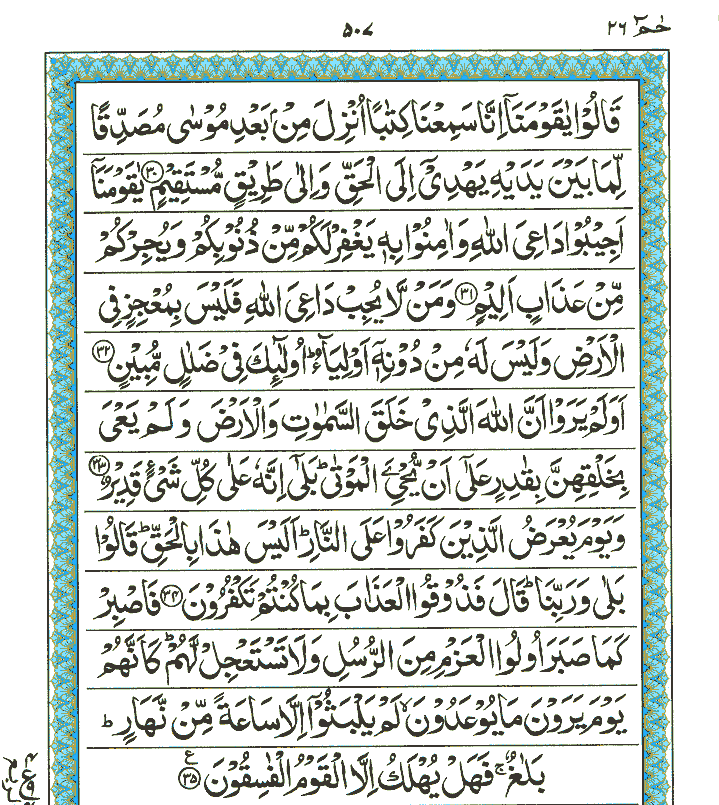 حٰمٓ ۲۶
۵۰۷
قَالُوْا يٰقَوْمَنَاۤ اِنَّا سَمِعْنَا كِتٰبًا اُنْزِلَ مِنْۢ بَعْدِ مُوْسٰى مُصَدِّقًا
لِّمَا بَيْنَ يَدَيْهِ يَهْدِيْۤ اِلَى الْحَقِّ وَاِلٰى طَرِيْقٍ مُّسْتَقِيْمٍ ﴿۳۰﴾ يٰقَوْمَنَاۤ
اَجِيْبُوْا دَاعِيَ اللّٰهِ وَاٰمِنُوْا بِهٖ يَغْفِرْ لَكُمْ مِّنْ ذُنُوْبِكُمْ وَيُجِرْكُمْ
مِّنْ عَذَابٍ اَلِيْمٍ ﴿۳۱﴾ وَمَنْ لَّا يُجِبْ دَاعِيَ اللّٰهِ فَلَيْسَ بِمُعْجِزٍ فِى
الْاَرْضِ وَلَيْسَ لَهٗ مِنْ دُوْنِهٖۤ اَوْلِيَآءُ ؕ اُولٰٓئِكَ فِيْ ضَلٰلٍ مُّبِيْنٍ ﴿۳۲﴾
اَوَلَمْ يَرَوْا اَنَّ اللّٰهَ الَّذِيْ خَلَقَ السَّمٰوٰتِ وَالْاَرْضَ وَلَمْ يَعْيَ
بِخَلْقِهِنَّ بِقٰدِرٍ عَلٰۤى اَنْ يُّحْيِۦَ الْمَوْتٰى ؕ بَلٰۤى اِنَّهٗ عَلٰى كُلِّ شَيْءٍ قَدِيْرٌ ﴿۳۳﴾
وَيَوْمَ يُعْرَضُ الَّذِيْنَ كَفَرُوْا عَلَى النَّارِ ؕ اَلَيْسَ هٰذَا بِالْحَقِّ ؕ قَالُوْا
بَلٰى وَرَبِّنَا ؕ قَالَ فَذُوْقُوا الْعَذَابَ بِمَا كُنْتُمْ تَكْفُرُوْنَ ﴿۳۴﴾ فَاصْبِرْ
كَمَا صَبَرَ اُولُوا الْعَزْمِ مِنَ الرُّسُلِ وَلَا تَسْتَعْجِلْ لَّهُمْ ؕ كَاَنَّهُمْ
يَوْمَ يَرَوْنَ مَا يُوْعَدُوْنَ ۙ لَمْ يَلْبَثُوْۤا اِلَّا سَاعَةً مِّنْ نَّهَارٍ ؕ
بَلٰغٌ ۚ فَهَلْ يُهْلَكُ اِلَّا الْقَوْمُ الْفٰسِقُوْنَ ﴿۳۵﴾ ع